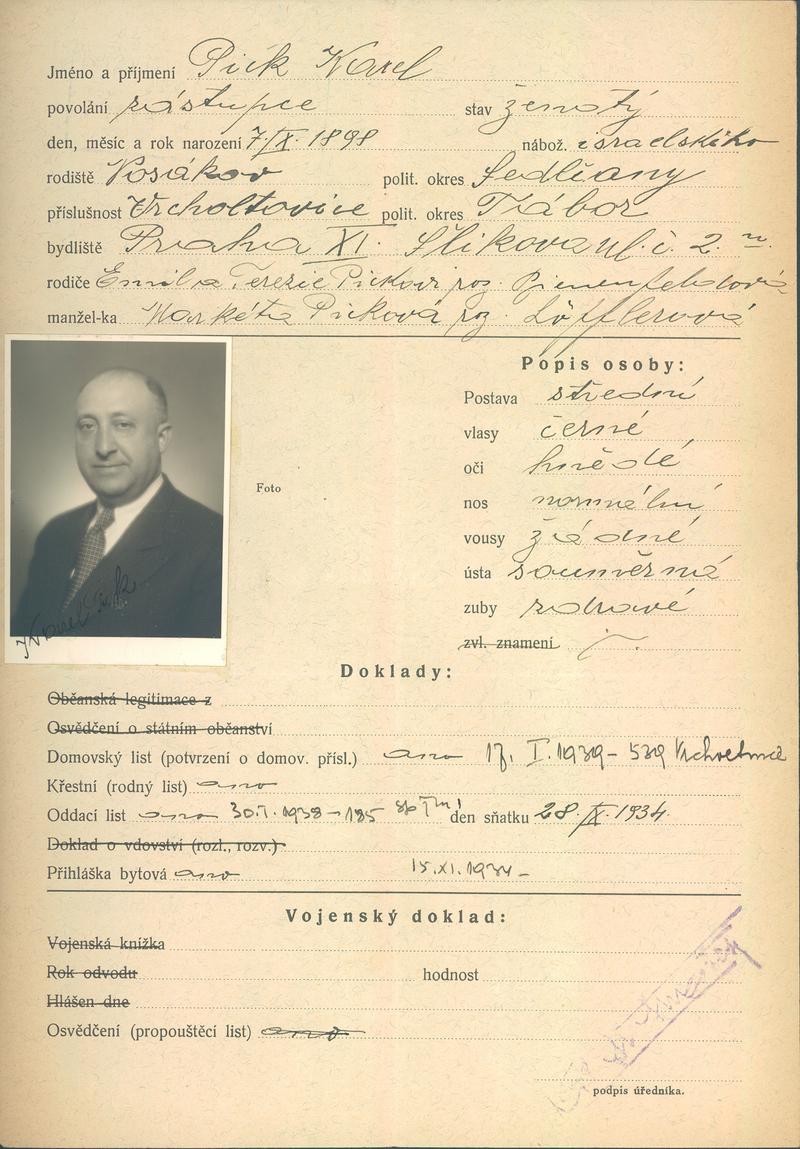 Jméno a příjmení Pick Karel
povolání zástupce stav ženatý
den, měsíc a rok narození 7/IX. 1898 nábož. israelského
rodiště Kosákov polit. okres Sedlčany
příslušnost Vrcholtovice polit. okres Tábor
bydliště Praha XI. Šlikova ul. č. 2.
rodiče Emil a Terezie Pickovi roz.
manžel-ka Markéta Picková roz. Löfflerová
Popis osoby:
Postava střední
vlasy černé
oči hnědé
Foto
nos normální
vousy žádné
ústa souměrná
zuby zdravé
zvl. znamení
Karel Pick
Doklady:
Občanská legitimace z
Osvědčení o státním občanství
Domovský list (potvrzení o domov. přísl.) ano 17. I. 1939 - 539
Křestní (rodný list) ano
Oddací list ano den sňatku 28. IX. 1934.
Doklad o vdovství (rozl., rozv.)
Přihláška bytová ano 15. XI. 1934 -
Vojenský doklad:
Vojenská knížka
Rok odvodu hodnost
Hlášen dne
Osvědčení (propouštěcí list) ano
podpis úředníka.